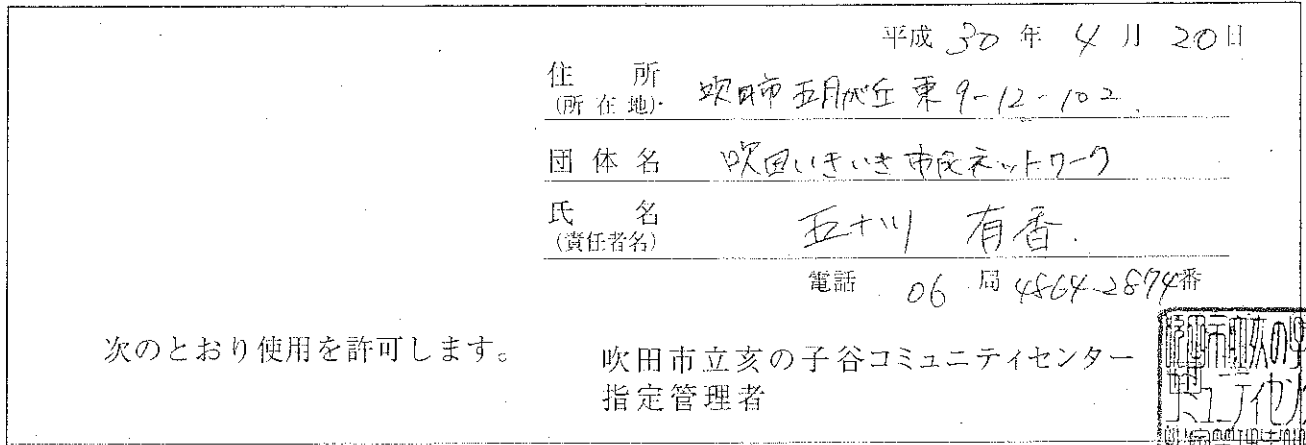 平成 30 年 4 月 20 日
住 所 吹田市 五月が丘 東 9-12-102
(所在地)
団体名 吹田いきいき市民ネットワーク
氏 名 五十川 有香.
(責任者名)
電話 06 局 4864-2874番
次のとおり使用を許可します。
吹田市立亥の子谷コミュニティセンター
指定管理者